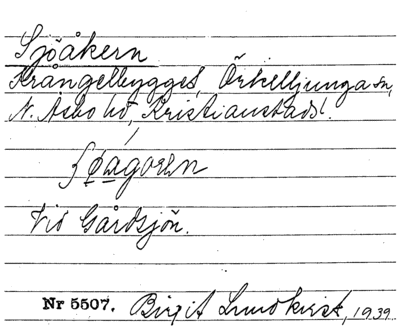 Sjöåkern
Krångelbygget, Örkelljunga sn,
N. Åsbo hd, Kristianstads l.
Vid Gårdsjön.
Nr 5507. Birgit Lundkvist, 1939